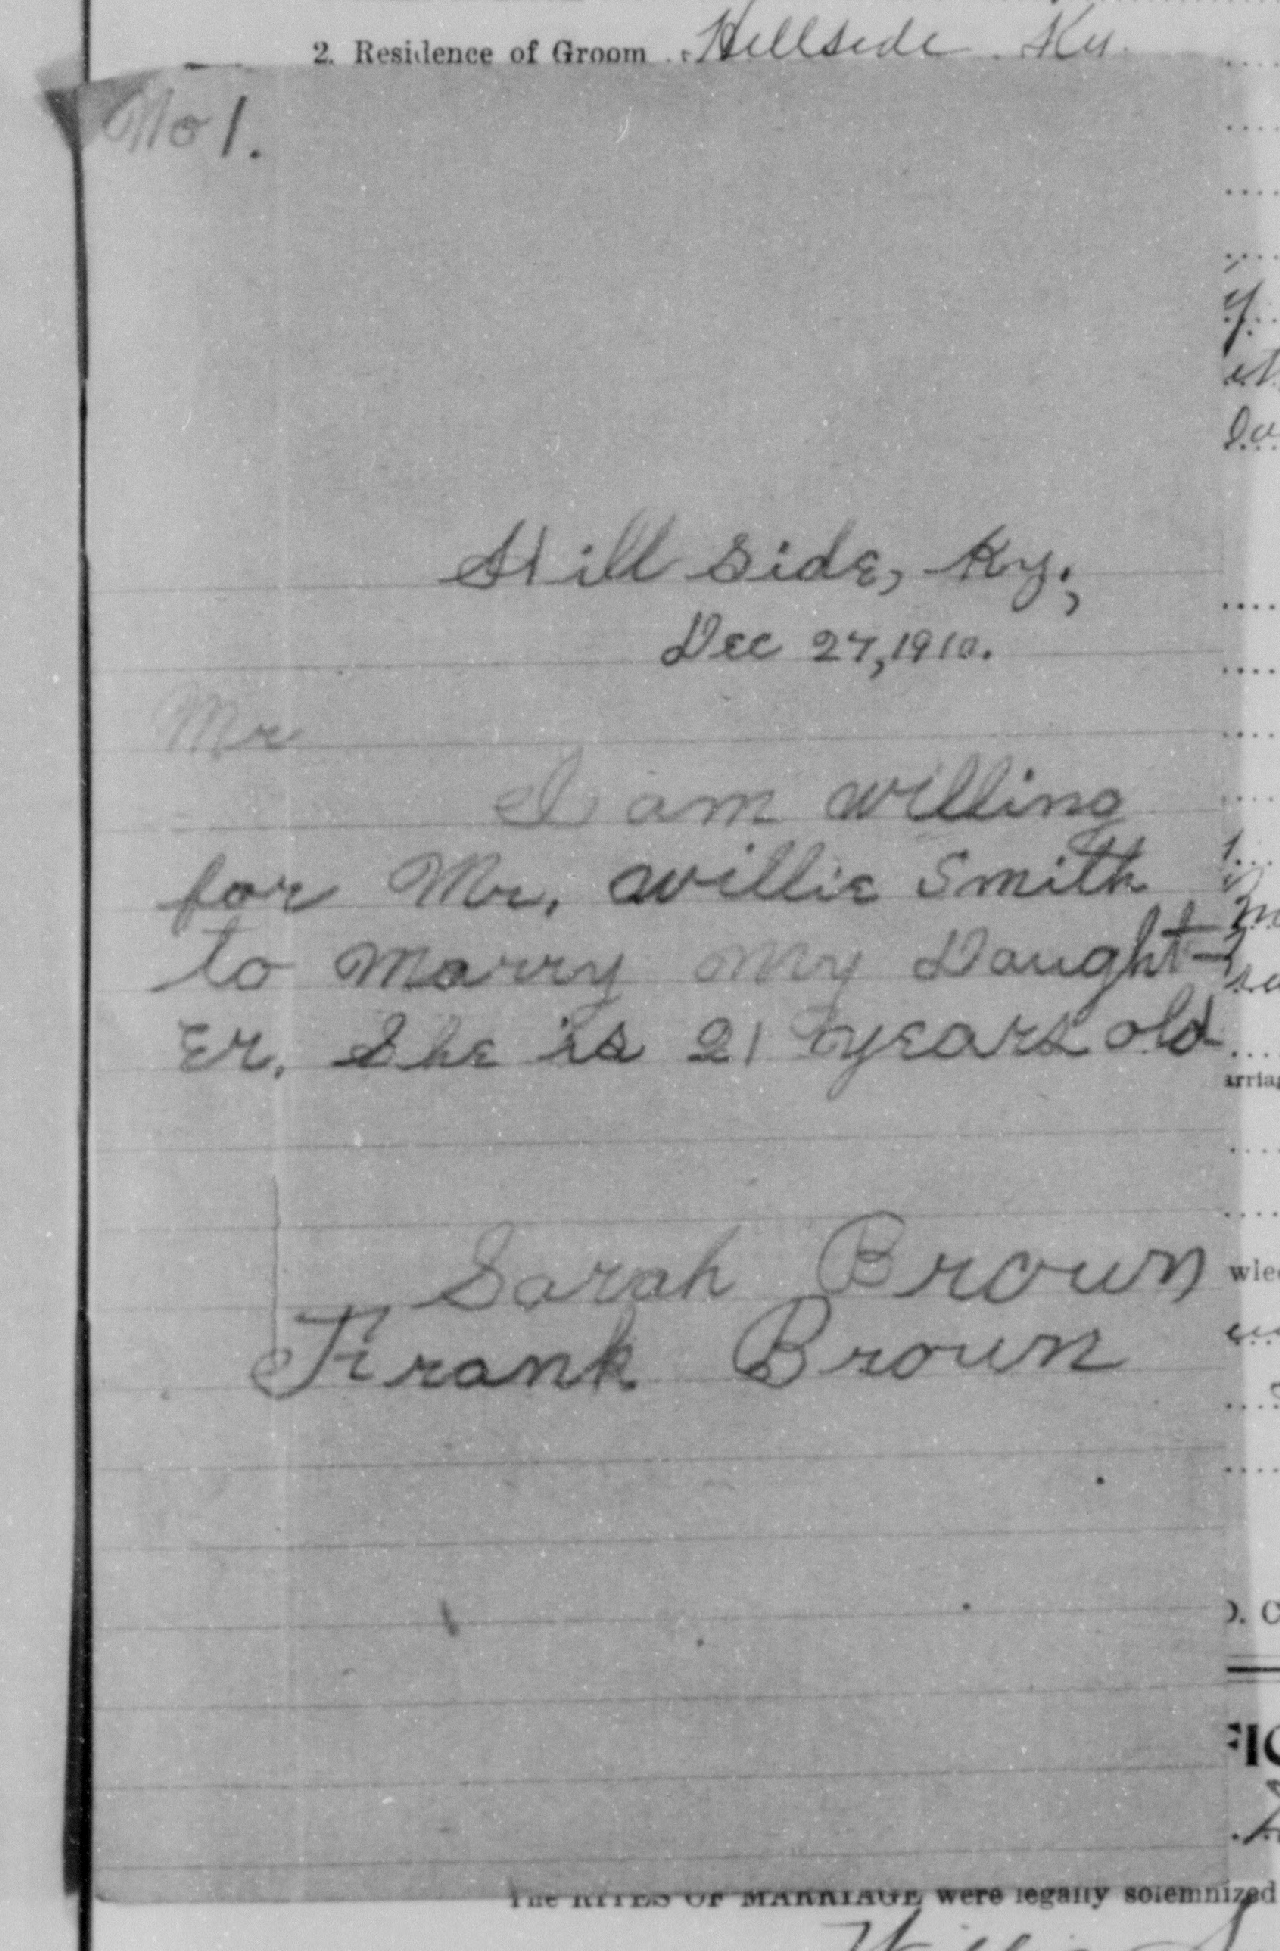 2. Residence of Groom Hillside Ky.
No 1.
Hill side, Ky.,
Dec 27, 1910.
Mr
I am willing
for Mr. willie Smith
to marry my Daught-
Er. She is 21 years old
Sarah Brown
Frank Brown
The RITES OF MARRIAGE were legally solemnized